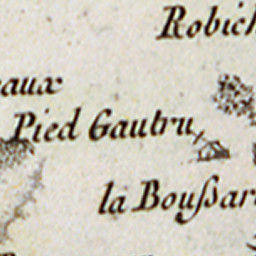 Robich
eaux
Pied Gautru,
la Bouſsar